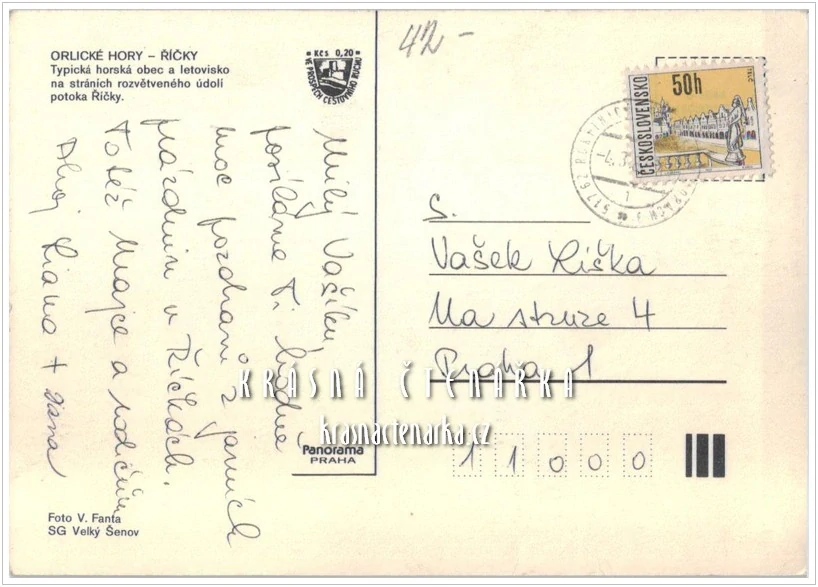 ORLICKÉ HORY – ŘÍČKY
Typická horská obec a letovisko
na stráních rozvětveného údolí
potoka Říčky.
Kčs 0,20
VE PROSPĚCH CESTOVNÍHO RUCHU
42–
ČESKOSLOVENSKO
50h
51762
-4.3
1
Milý Vašíku,
posíláme Ti hodně
moc pozdravů z jarních
prázdnin v Říčkách.
Totéž Majce a rodičům
Ahoj Liana + Jana
S.
Vašek Liška
Na struze 4
Praha 1
11000
KRÁSNÁ ČTENÁŘKA
krasnactenarka.cz
Panorama
PRAHA
Foto V. Fanta
SG Velký Šenov